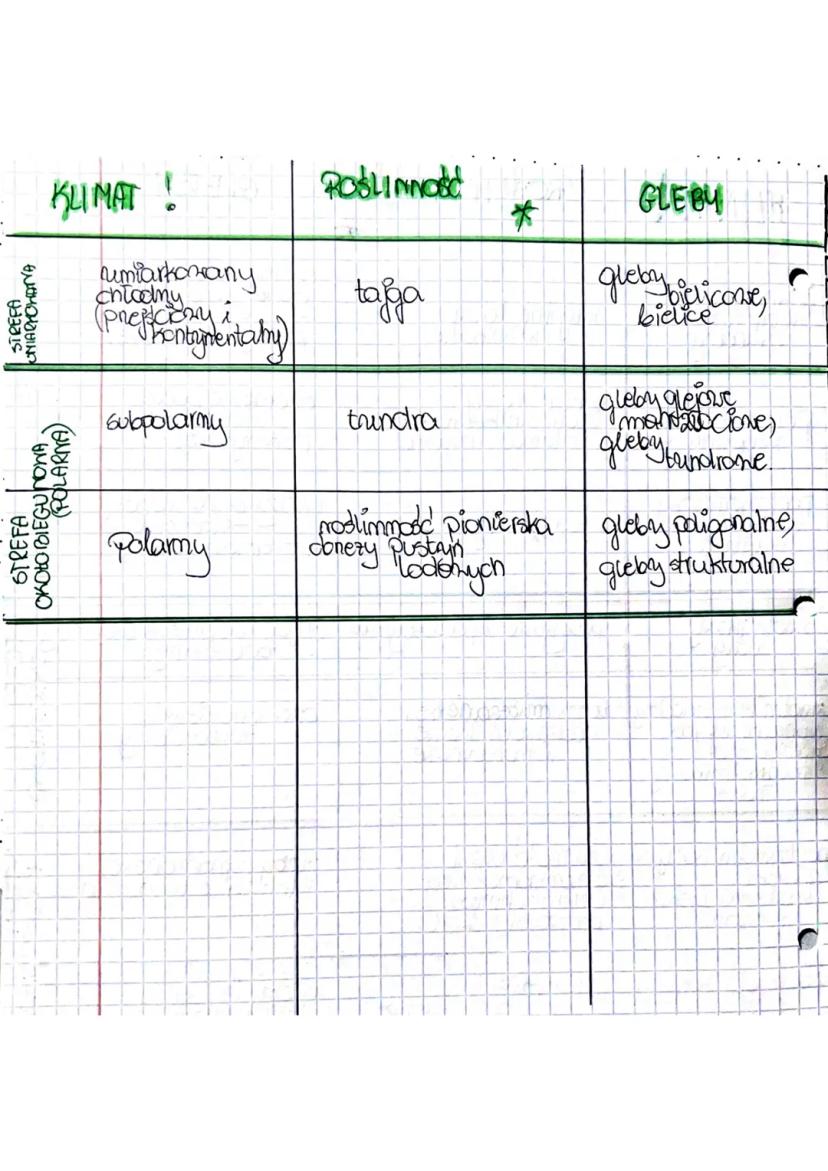 KLIMAT !
ROŚLINNOŚĆ *
GLEBY
STREFA
UMIARKOWANA
umiarkowany
chłodny
(przejściowy i
kontynentalny)
tajga
gleby
bielicowe,
bielice
STREFA
OKOŁOBIEGUNOWA
(POLARNA)
subpolarny
tundra
gleby glejowe
gleby
tundrowe.
polarny
roślinność pionierska
obrzeży pustyń
lodowych
gleby poligonalne,
gleby strukturalne